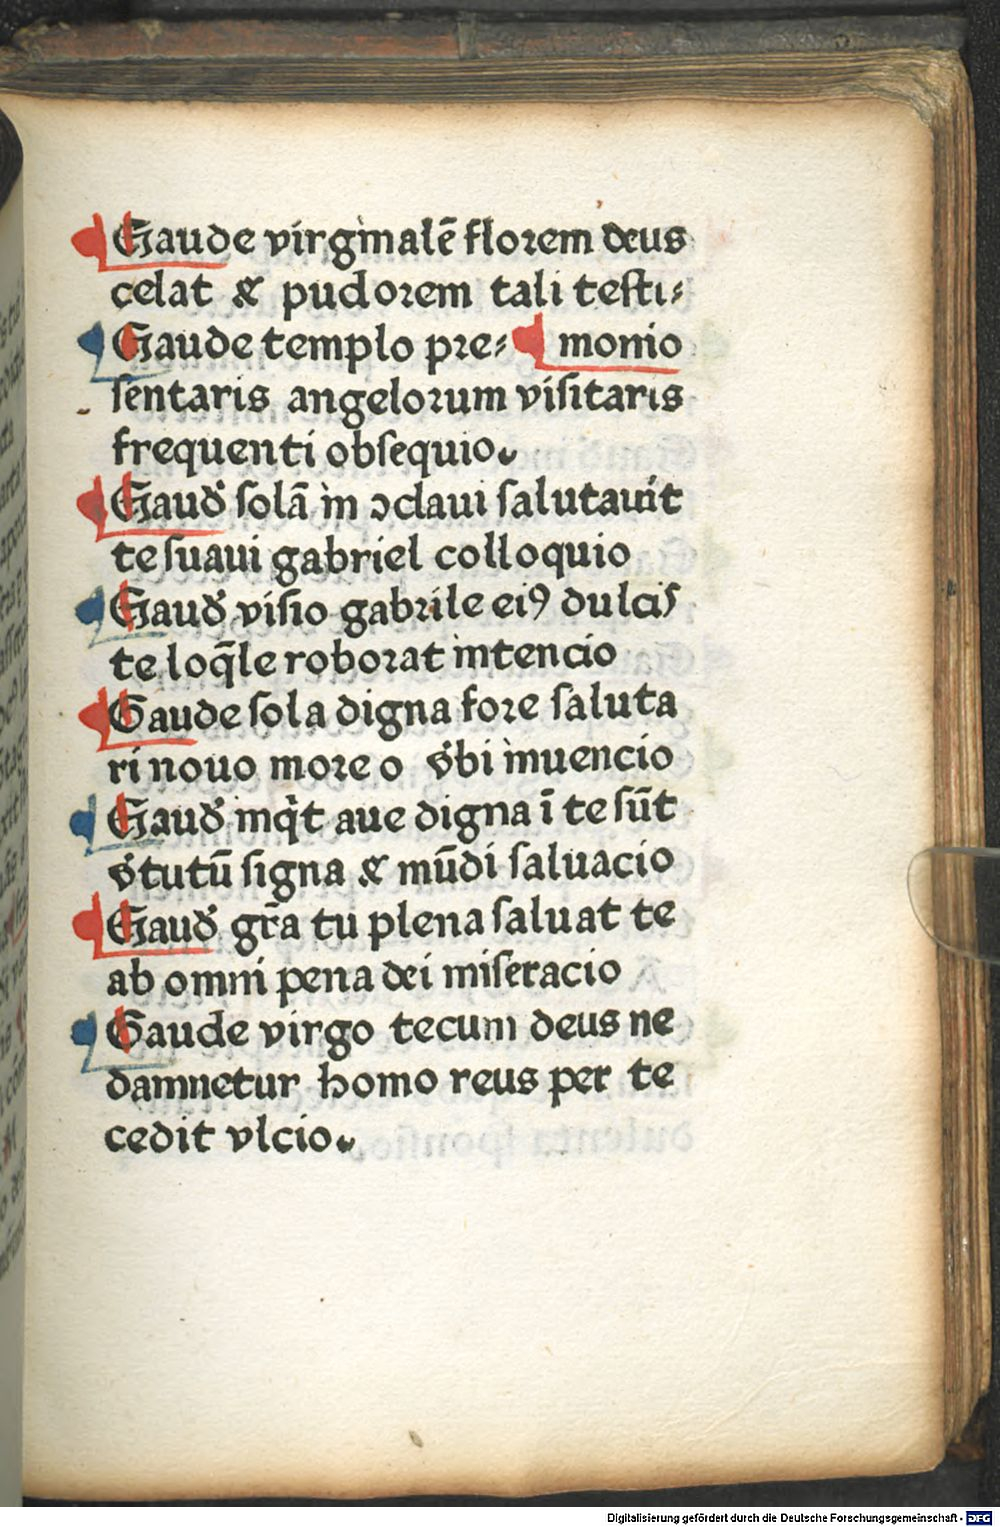 Gaude virginalē florem deus
celat & pudorem tali testi⸗
Gaude templo pre⸗ ¶ monio
sentaris angelorum visitaris
frequenti obsequio
Gaud̕ solā in ↄclaui salutauit
te suaui gabriel colloquio
Gaud̕ visio gabrile eiꝯ dulcis
te loq̄le roborat intencio
Gaude sola digna fore saluta
ri nouo more o v̕bi inuencio
Gaud̕ inqͥt aue digna ī te sūt
v̕tutū signa & mūdi saluacio
Gaud̕ gr̄a tu plena saluat te
ab omni pena dei miseracio
Gaude virgo tecum deus ne
damnetur homo reus per te
cedit vlcio
Digitalisierung gefördert durch die Deutsche Forschungsgemeinschaft - DFG